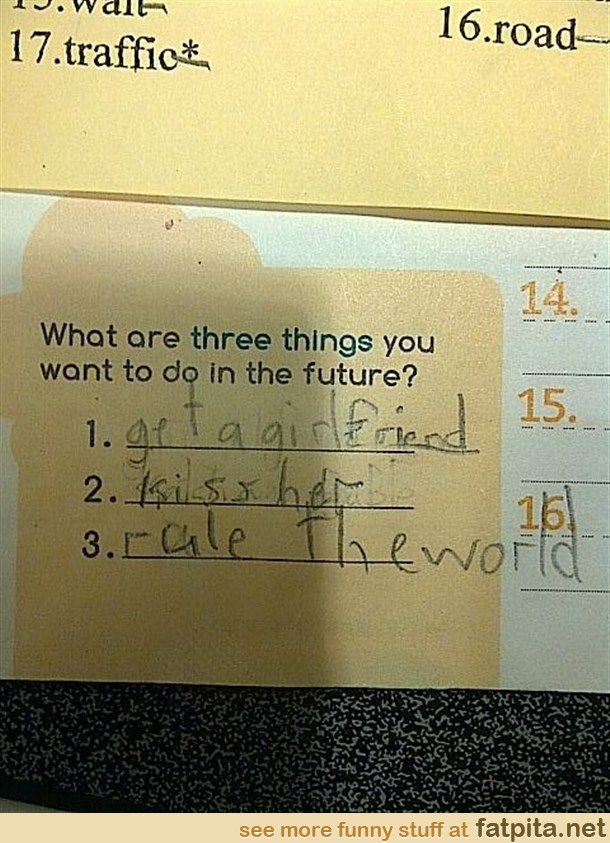 15.wait
16.road
17.traffic*
What are three things you
want to do in the future?
1. get a girlfriend
2. kiss her
3. rule the world
14.
15.
16.
see more funny stuff at fatpita.net